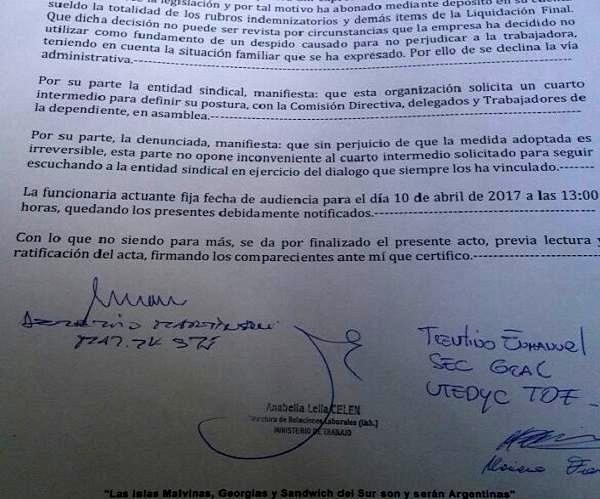 la legislación y por tal motivo ha abonado mediante depósito en su cuenta
sueldo la totalidad de los rubros indemnizatorios y demás items de la Liquidación Final.
Que dicha decisión no puede ser revista por circunstancias que la empresa ha decidido no
utilizar como fundamento de un despido causado para no perjudicar a la trabajadora,
teniendo en cuenta la situación familiar que se ha expresado. Por ello de se declina la vía
administrativa.
Por su parte la entidad sindical, manifiesta: que esta organización solicita un cuarto
intermedio para definir su postura, con la Comisión Directiva, delegados y Trabajadores de
la dependiente, en asamblea.
Por su parte, la denunciada, manifiesta: que sin perjuicio de que la medida adoptada es
irreversible, esta parte no opone inconveniente al cuarto intermedio solicitado para seguir
escuchando a la entidad sindical en ejercicio del dialogo que siempre los ha vinculado.
La funcionaria actuante fija fecha de audiencia para el día 10 de abril de 2017 a las 13:00
horas, quedando los presentes debidamente notificados.
Con lo que no siendo para más, se da por finalizado el presente acto, previa lectura y
ratificación del acta, firmando los comparecientes ante mí que certifico.
SEC GRAL
UTEDYC TDF
Anabella Leila CELEN
Relaciones Laborales (Ush.)
MINISTERIO DE TRABAJO
"Las Islas Malvinas, Georgias y Sandwich del Sur son y serán Argentinas"